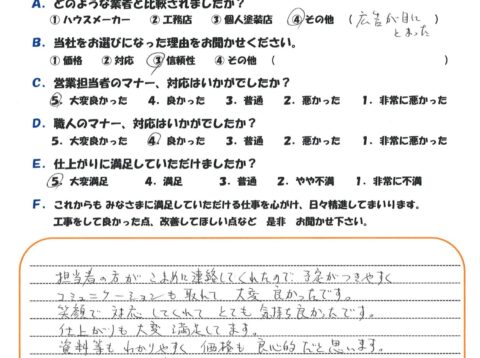 A．どのような業者と比較されましたか？
① ハウスメーカー　② 工務店　③ 個人塗装店　④ その他　（ 広告が目にとまった
B．当社をお選びになった理由をお聞かせください。
① 価格　② 対応　③ 信頼性　④ その他　（　　　）
C．営業担当者のマナー、対応はいかがでしたか？
5．大変良かった　4．良かった　3．普通　2．悪かった　1．非常に悪かった
D．職人のマナー、対応はいかがでしたか？
5．大変良かった　4．良かった　3．普通　2．悪かった　1．非常に悪かった
E．仕上がりに満足していただけましたか？
5．大変満足　4．満足　3．普通　2．やや不満　1．非常に不満
F．これからも みなさまに満足していただける仕事を心がけ、日々精進してまいります。
工事をして良かった点、改善してほしい点など　是非　お聞かせ下さい。
担当者の方が こまめに連絡してくれたので 予定がつきやすく
コミュニケーションも取れて 大変 良かったです。
笑顔で 対応 してくれて とても 気持ち良かったです。
仕上がりも 大変 満足してます。
資料等も わかりやすく 価格も 良心的だと思います。